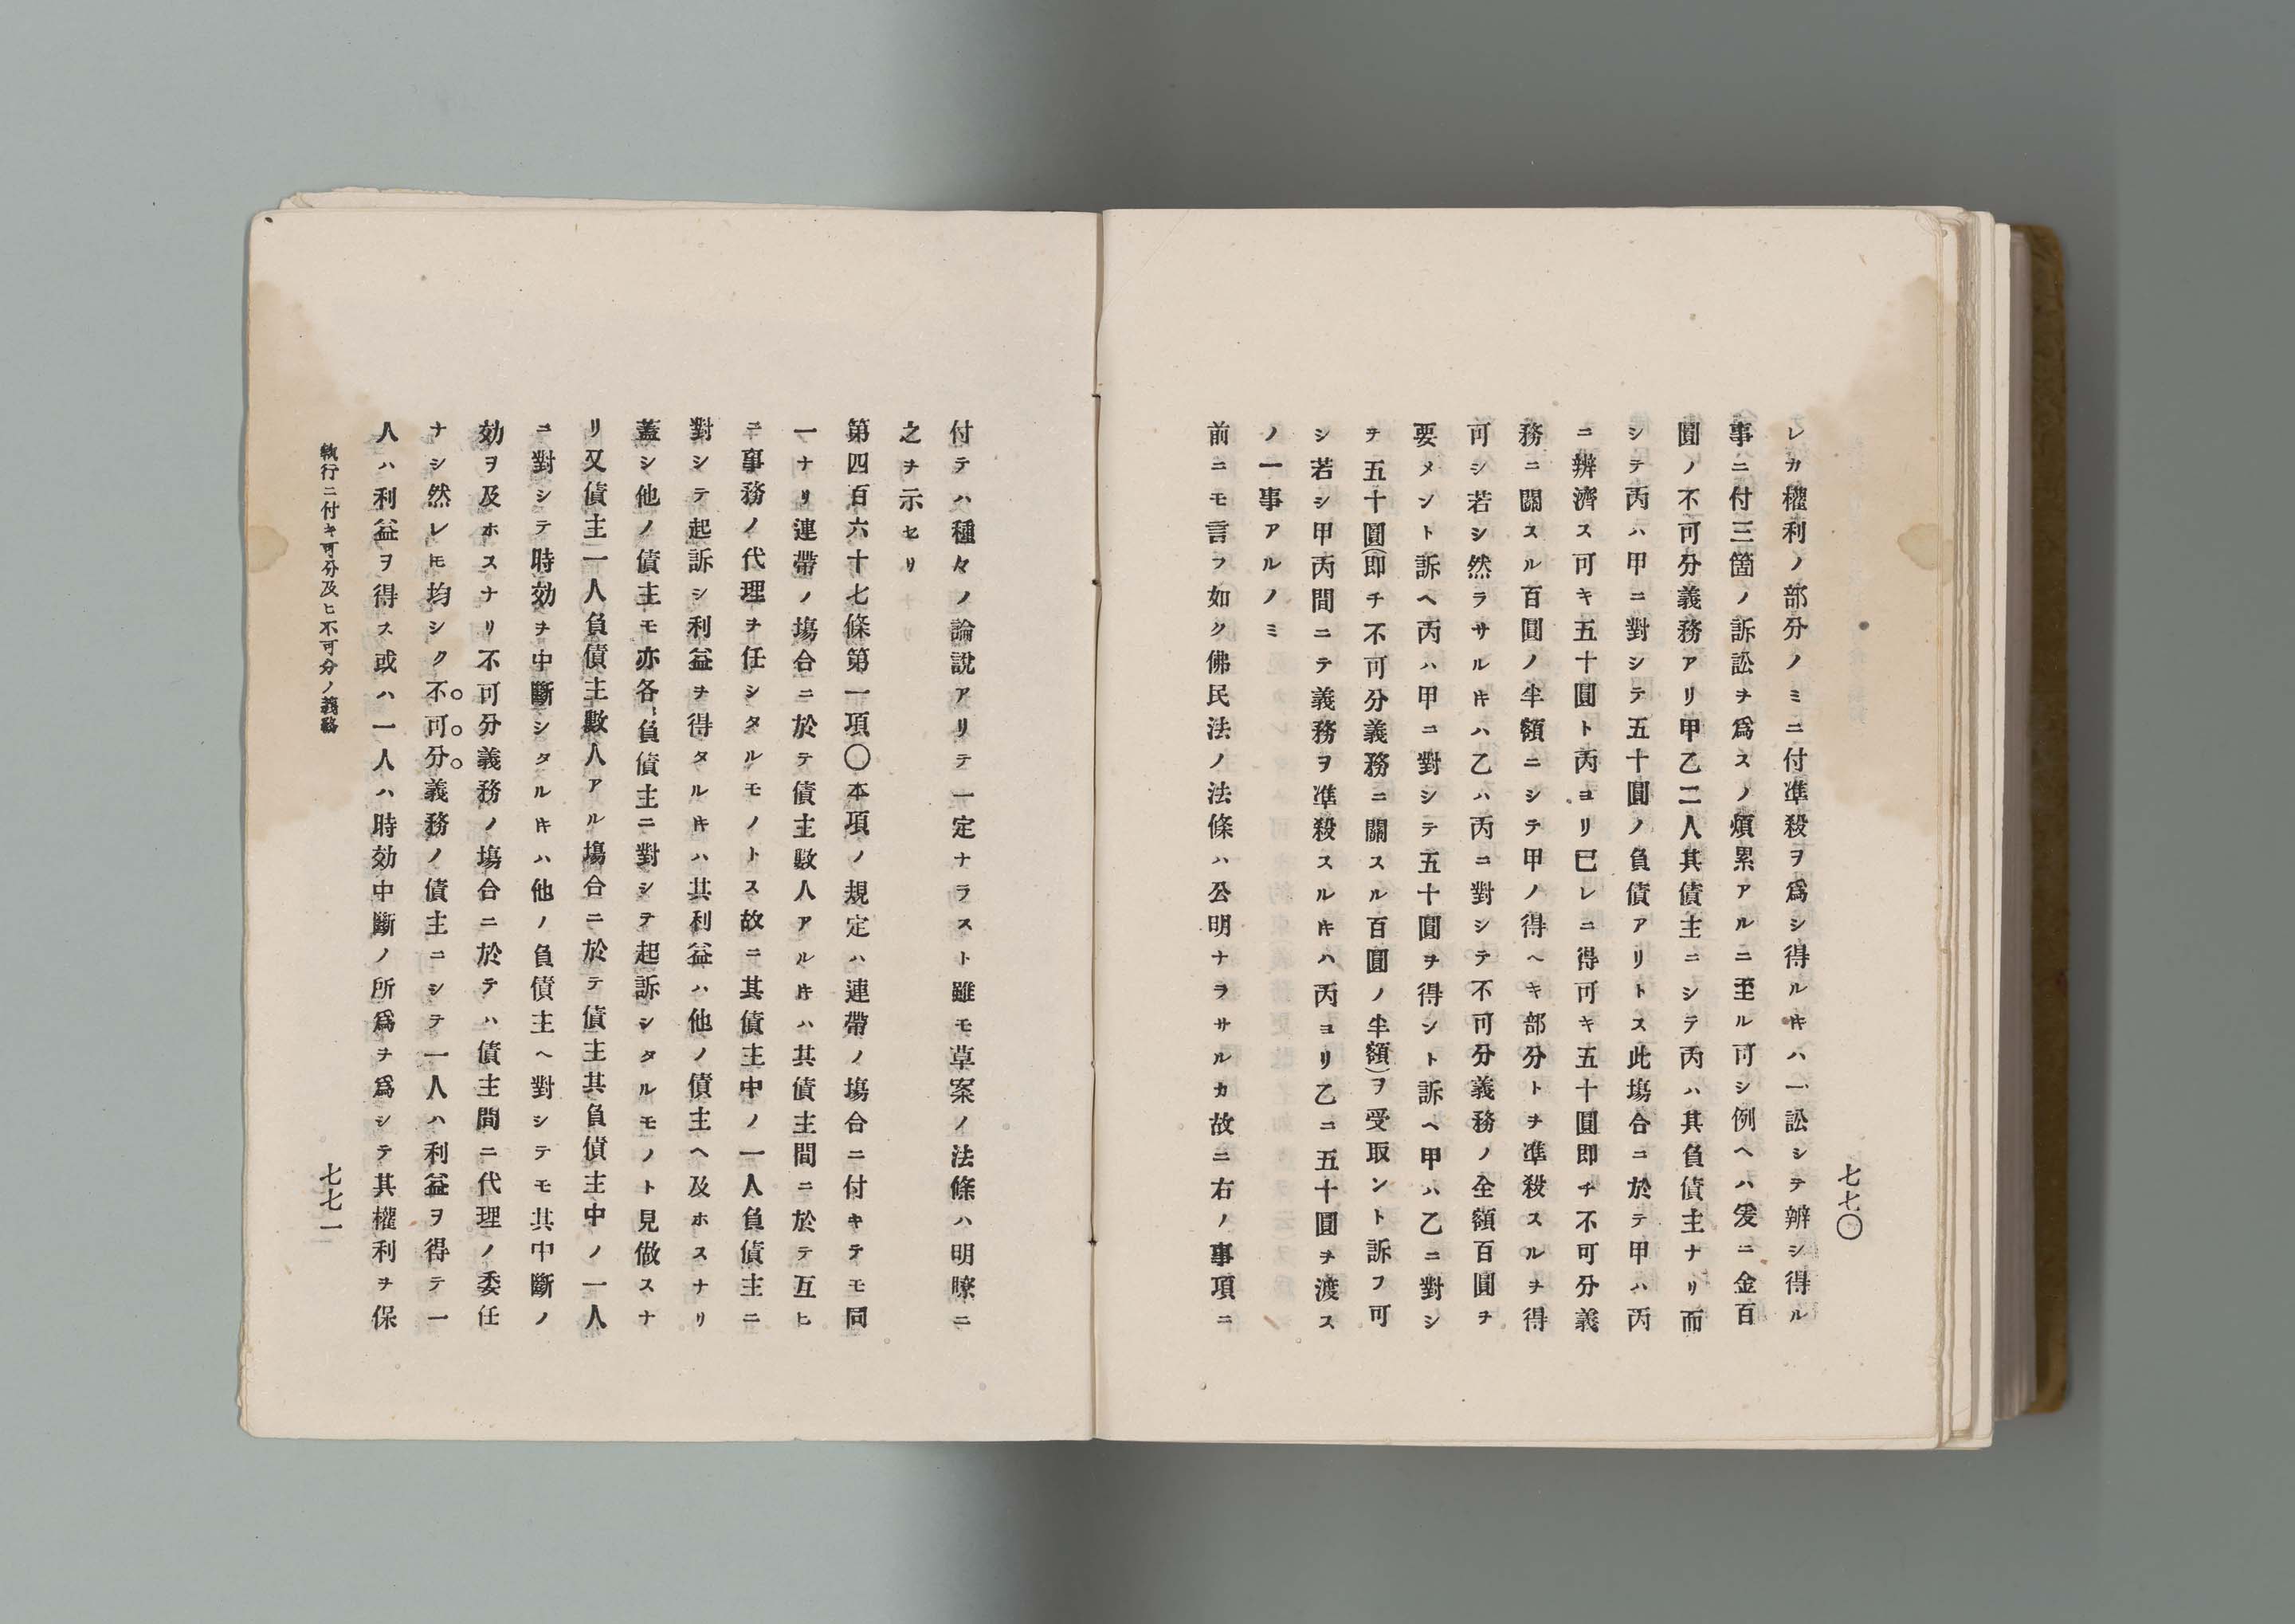 七七〇
レカ權利ノ部分ノミニ付準殺ヲ爲シ得ルキハ一訟シテ辨シ得ル
事ニ付三箇ノ訴訟ヲ爲スノ煩累アルニ至ル可シ例ヘハ爰ニ金百
圓ノ不可分義務アリ甲乙二人其債主ニシテ丙ハ其負債主ナリ而
シテ丙ハ甲ニ對シテ五十圓ノ負債アリトス此塲合ニ於テ甲ハ丙
ニ辨濟ス可キ五十圓ト丙ヨリ已レニ得可キ五十圓即チ不可分義
務ニ關スル百圓ノ半額ニシテ甲ノ得ヘキ部分トヲ準殺スルヲ得
可シ若シ然ラサルキハ乙ハ丙ニ對シテ不可分義務ノ全額百圓ヲ
要メント訴ヘ丙ハ甲ニ對シテ五十圓ヲ得シト訴ヘ甲ハ乙ニ對シ
テ五十圓(即チ不可分義務ニ關スル百圓ノ半額)ヲ受取ント訴フ可
シ若シ甲丙間ニテ義務ヲ準殺スルキハ丙ヨリ乙ニ五十圓ヲ渡ス
ノ一事アルノミ
前ニモ言フ如ク佛民法ノ法條ハ公明ナラサルカ故ニ右ノ事項ニ
付テハ種々ノ論說アリテ一定ナラスト雖モ草案ノ法條ハ明瞭ニ
之ヲ示セリ
第四百六十七條第一項〇本項ノ規定ハ連帶ノ塲合ニ付キテモ同
一ナリ連帶ノ塲合ニ於テ債主數人アルキハ其債主間ニ於テ互ヒ
ニ事務ノ代理ヲ任シタルモノトス故ニ其債主中ノ一人負債主ニ
對シテ起訴シ利益ヲ得タルキハ其利益ハ他ノ債主ヘ及ホスナリ
蓋シ他ノ債主モ亦各負債主ニ對シテ起訴シタルモノト見做スナ
リ又債主一人負債主數人アル塲合ニ於テ債主其負債主中ノ一人
ニ對シテ時効ヲ中斷シタルキハ他ノ負債主ヘ對シテモ其中斷ノ
効ヲ及ホスナリ不可分義務ノ塲合ニ於テハ債主間ニ代理ノ委任
ナシ然レモ均シク不可分義務ノ債主ニシテ一人ハ利益ヲ得テ一
人ハ利益ヲ得ス或ハ一人ハ時効中斷ノ所爲ヲ爲シテ其權利ヲ保
執行ニ付キ可分及ヒ不可分ノ義務
七七一